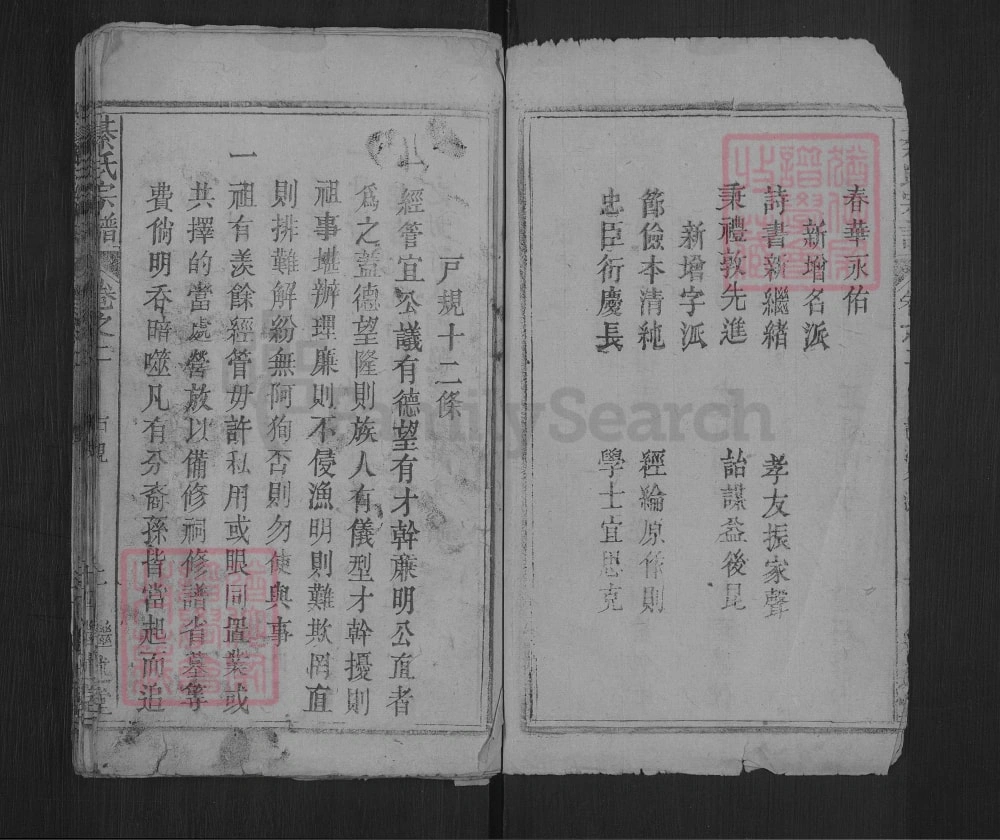 春華永佑
新增名派
詩書新繼緒 孝友振家聲
秉禮敦先進 詒謀益後昆
新增字派
節儉本清純 經綸原作則
忠臣衍慶長 學士宜思克
戸規十二條
一經管宜公議有德望有才幹亷明公直者
爲之蓋德望隆則族人有儀型才幹擾則
祖事堪辦理廉則不侵漁明則難欺罔直
則排難解紛無阿狥否則勿使與事
一祖有羡餘經管毋許私用或眼同置業或
共擇的當處營放以備修祠修譜省墓等
費倘明吞暗噬凡有分裔孫皆當起而追
綦氏宗譜 卷之二 戸規
FamilySearch